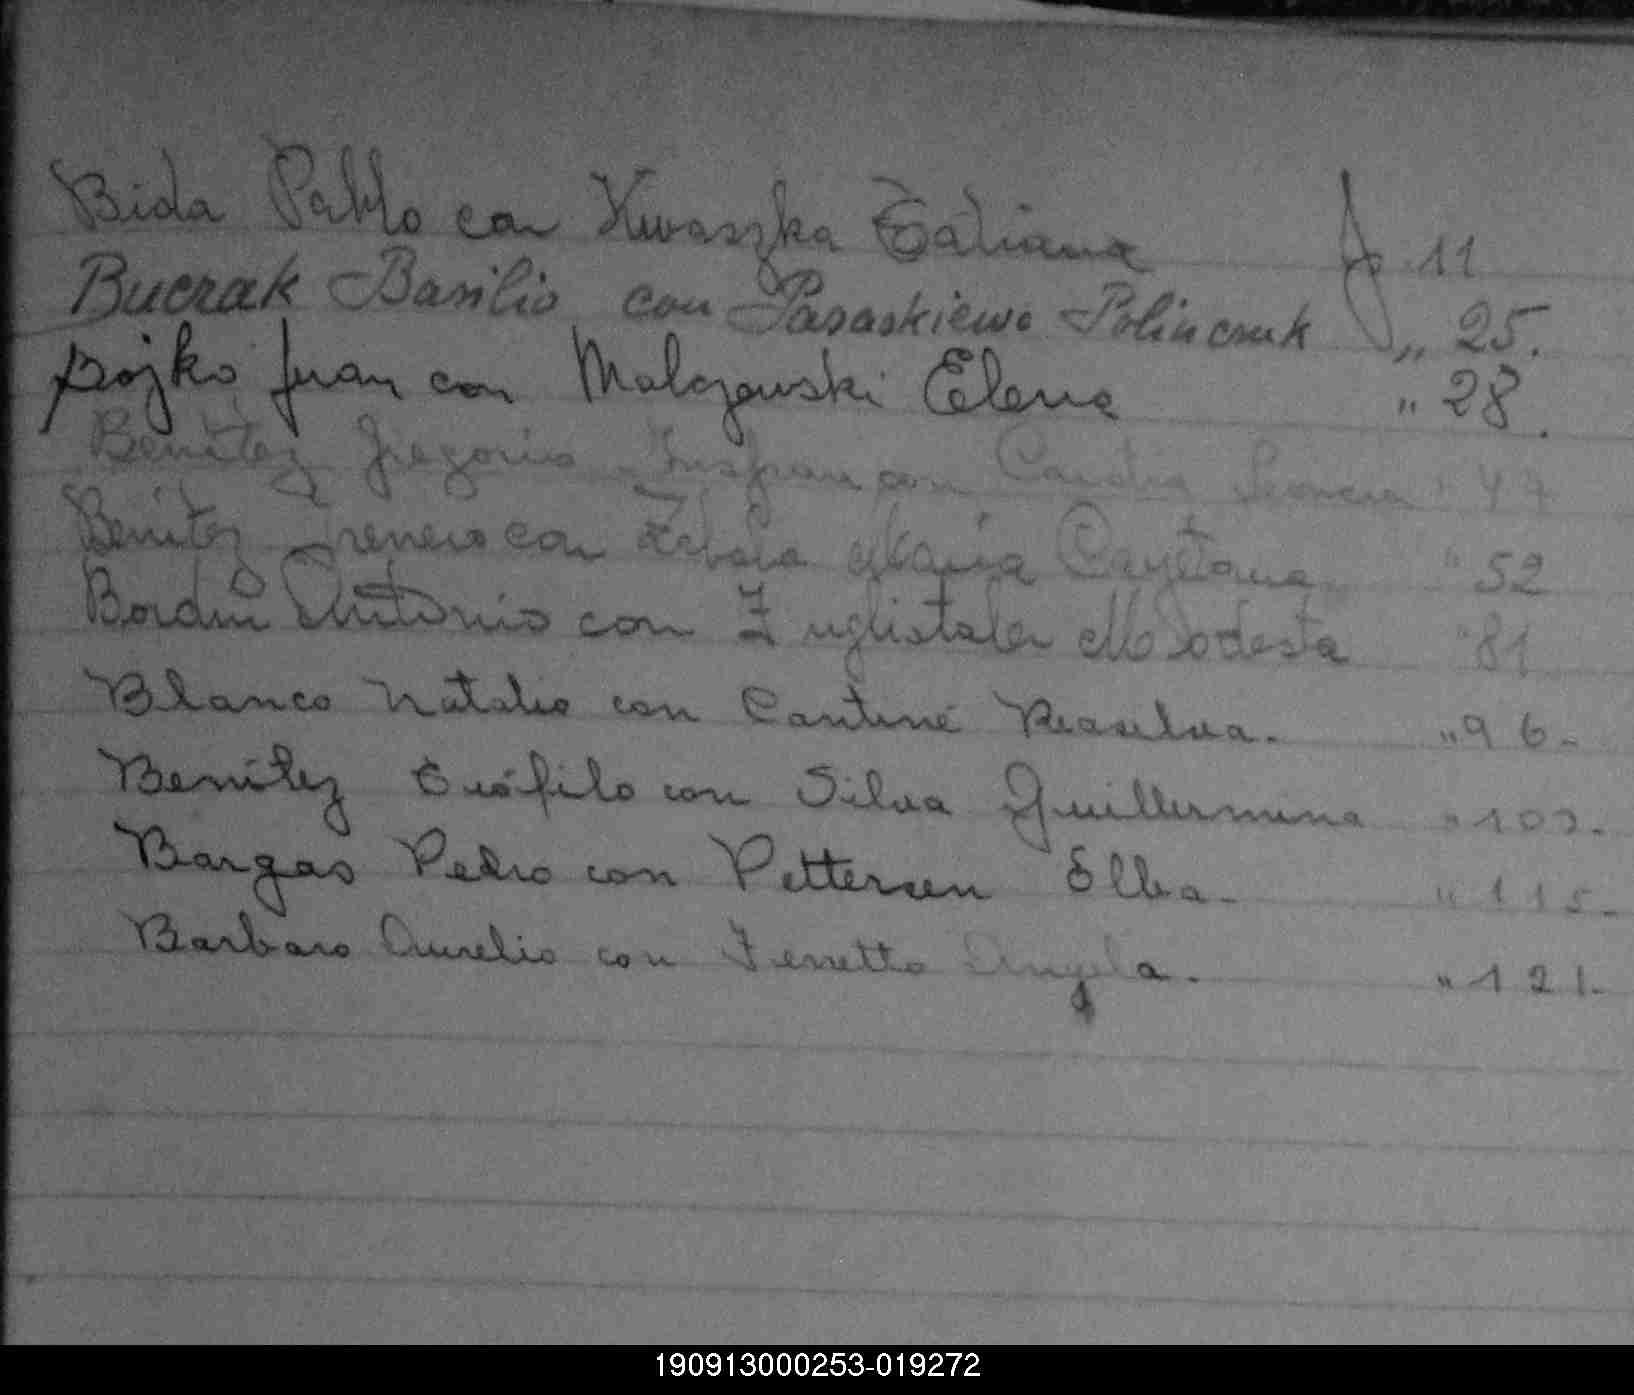 Bida Pablo con Kwaszka Tatiana fo 11
Buczak Basilio con Pasaskiewo Polinczuk " 25.
Bojko Juan con Malczewski Elena " 28.
Benitez Gregorio con " 47
Benitez Ireneo con Zabala Maria Cayetana " 52
Bordin Antonio con Zuglistaler Modesta " 81
Blanco Natalio con Cantiné Rosalva. " 96-
Benitez Teófilo con Silva Guillermina " 100.
Bargas Pedro con Pettersen Elba. " 115-
Barbaro Aurelio con Ferretto Angela. " 121-
190913000253-019272